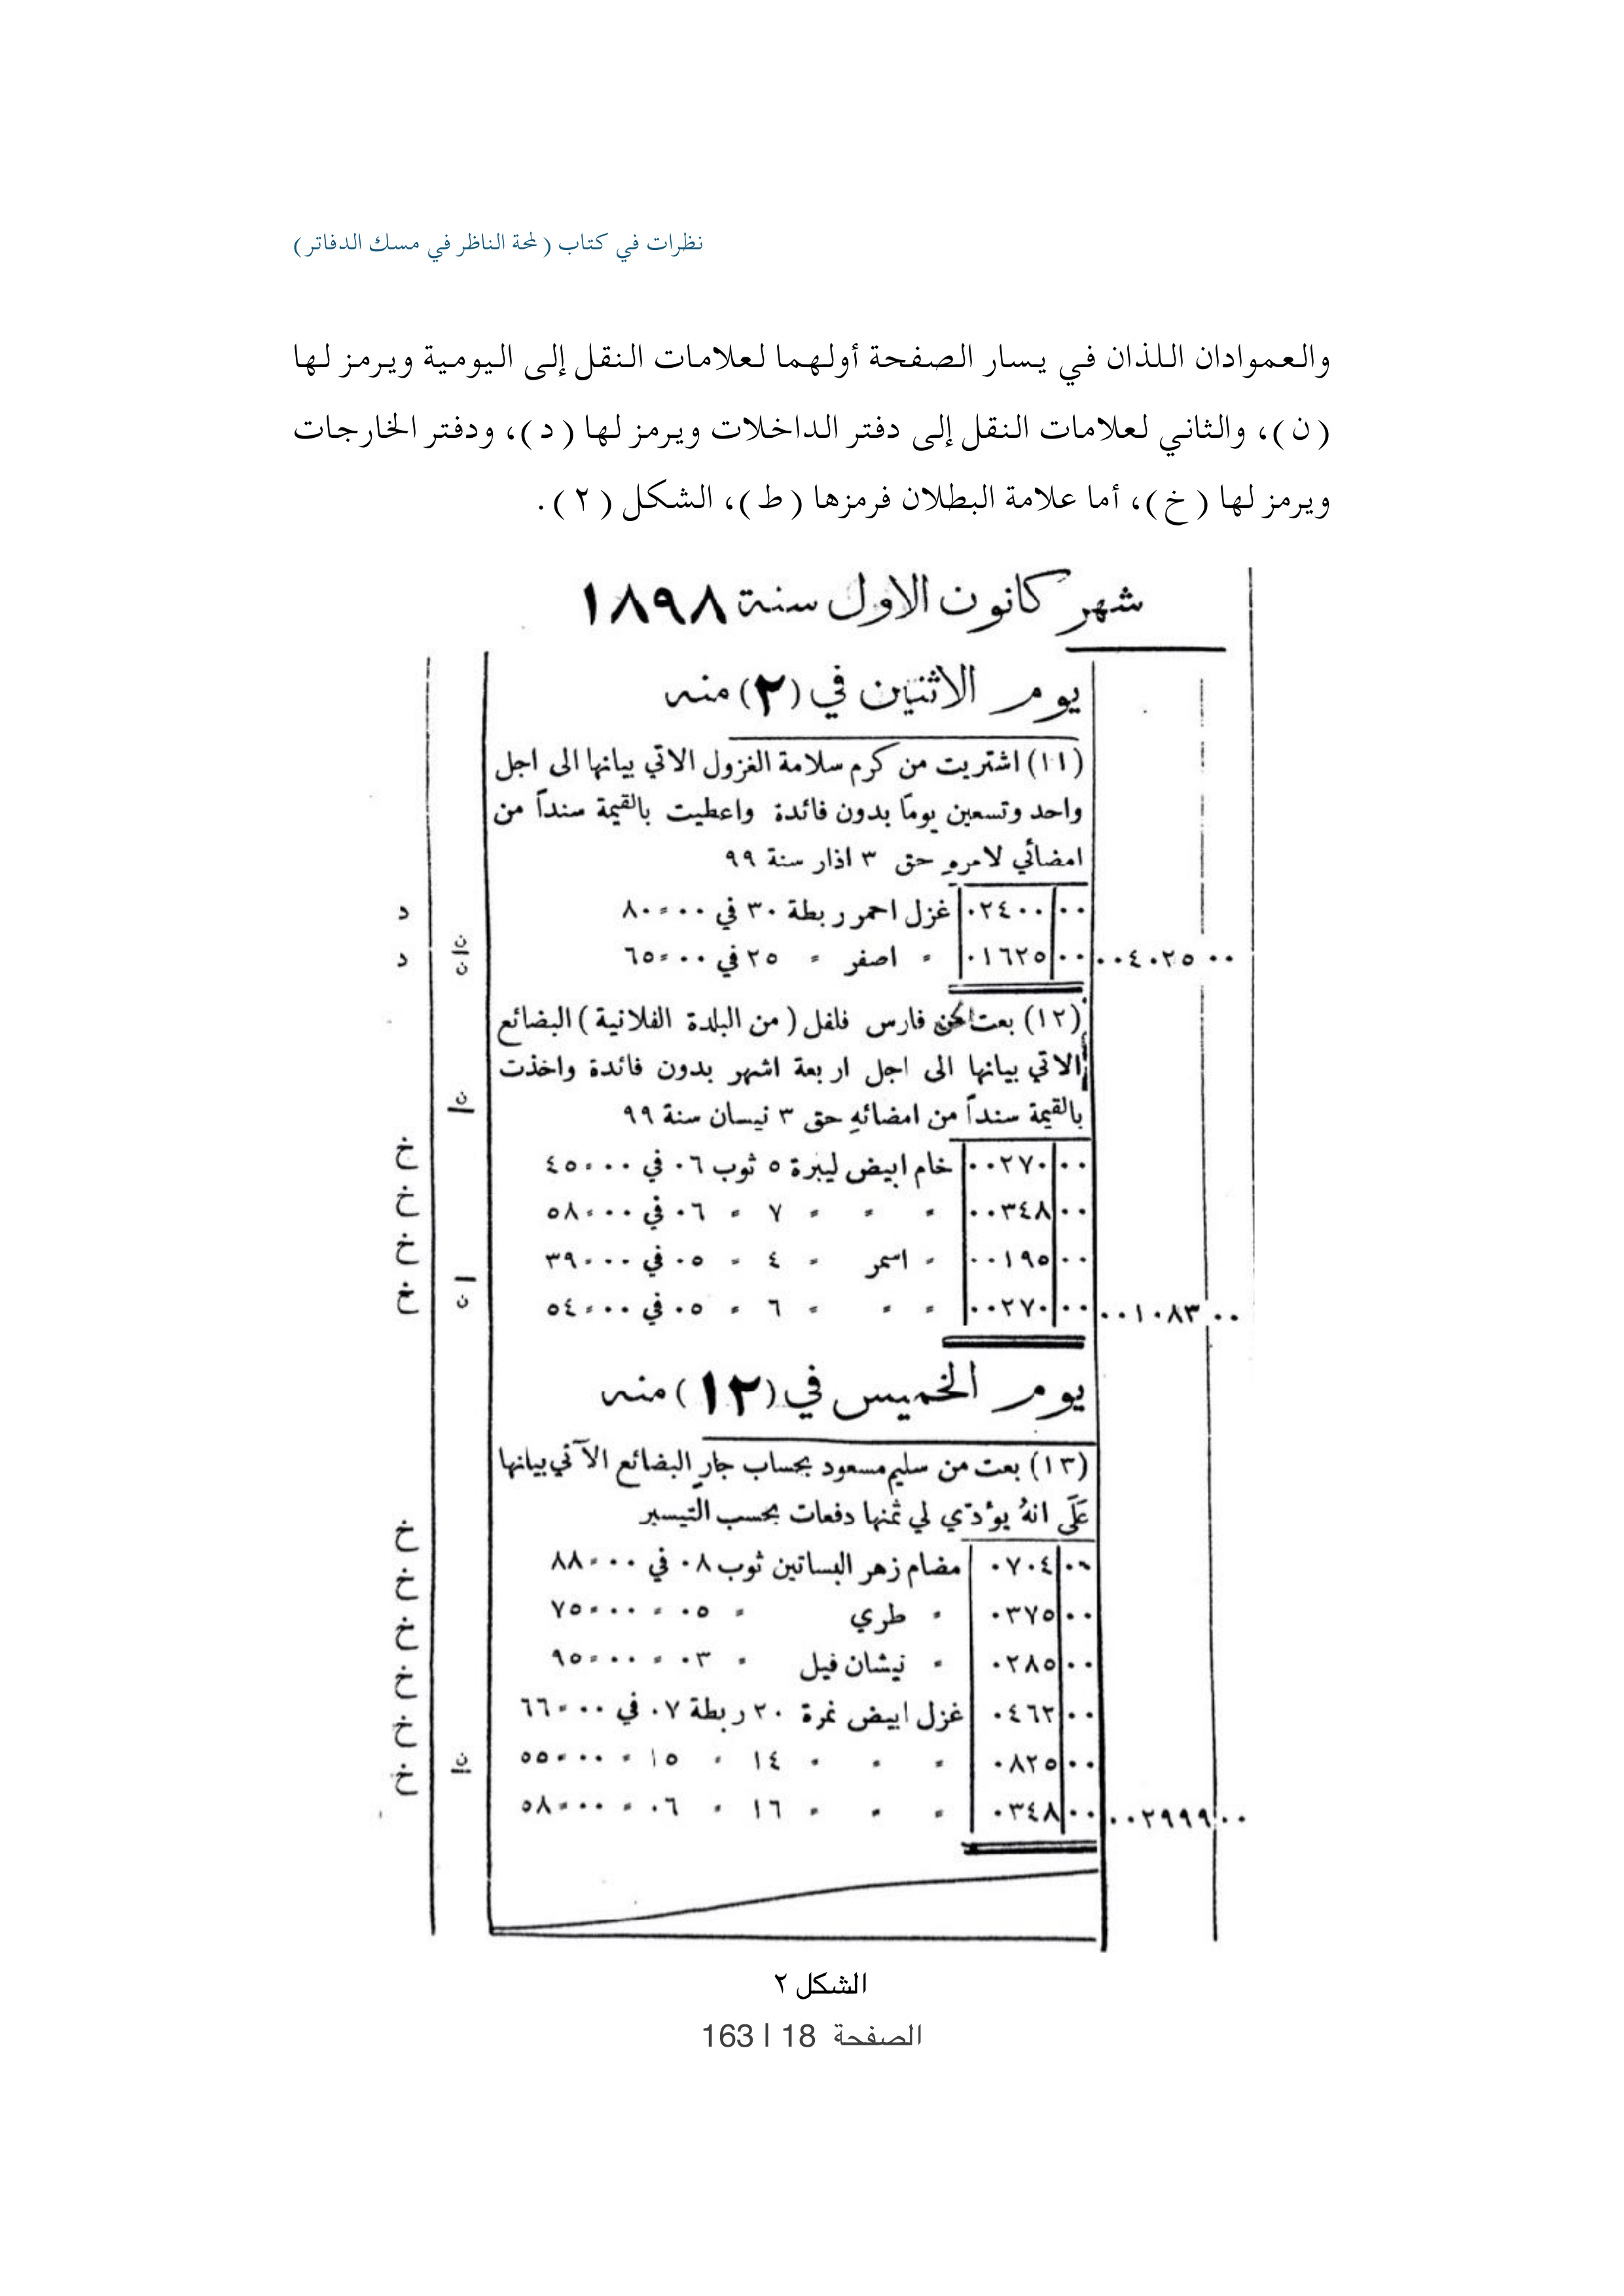 نظرات في كتاب (لمحة الناظر في مسك الدفاتر)
والعموادان اللذان في يسار الصفحة أولهما لعلامات النقل إلى اليومية ويرمز لها
(ن)، والثاني لعلامات النقل إلى دفتر الداخلات ويرمز لها (د)، ودفتر الخارجات
ويرمز لها (خ)، أما علامة البطلان فرمزها (ط)، الشكل (٢).
شهر كانون الاول سنة ١٨٩٨
يوم الاثنين في (٢) منه
(١١) اشتريت من كرم سلامة الغزول الاتي بيانها الى اجل
واحد وتسعين يومًا بدون فائدة واعطيت بالقيمة سنداً من
امضائي لامرهِ حق ٣ اذار سنة ٩٩
٠٠ ٠٢٤٠٠ غزل احمر ربطة ٣٠ في ٠٠ = ٨٠ د
٠٠ ٠٠٤٠٢٥ ٠٠ ٠١٦٢٥ = اصفر = ٢٥ في ٠٠ = ٦٥ ن ن د
(١٢) بعت فارس فلفل (من البلدة الفلانية) البضائع
الاتي بيانها الى اجل اربعة اشهر بدون فائدة واخذت
بالقيمة سنداً من امضائهِ حق ٣ نيسان سنة ٩٩ ن
٠٠ ٠٠٢٧٠ خام ابيض ليبرة ٥ ثوب ٠٦ في ٠٠ = ٤٥ خ
٠٠ ٠٠٣٤٨ = = = ٧ = ٠٦ في ٠٠ = ٥٨ خ
٠٠ ٠٠١٩٥ = اسمر = ٤ = ٠٥ في ٠٠ = ٣٩ خ
٠٠ ٠٠١٠٨٣ ٠٠ ٠٠٢٧٠ = = = ٦ = ٠٥ في ٠٠ = ٥٤ ن خ
يوم الخميس في (١٢) منه
(١٣) بعت من سليم مسعود بحساب جارٍ البضائع الآتي بيانها
عَلَى انهُ يؤدّي لي ثمنها دفعات بحسب التيسير
٠٠ ٠٧٠٤ مضام زهر البساتين ثوب ٠٨ في ٠٠ = ٨٨ خ
٠٠ ٠٣٧٥ = طري = ٠٥ = ٠٠ = ٧٥ خ
٠٠ ٠٢٨٥ = نيشان فيل = ٠٣ = ٠٠ = ٩٥ خ
٠٠ ٠٤٦٢ غزل ابيض نمرة ٢٠ ربطة ٠٧ في ٠٠ = ٦٦ خ
٠٠ ٠٨٢٥ = = = ١٤ = ١٥ = ٠٠ = ٥٥ ن خ
٠٠ ٠٠٢٩٩٩ ٠٠ ٠٣٤٨ = = = ١٦ = ٠٦ = ٠٠ = ٥٨ خ
الشكل ٢
الصفحة 18 | 163